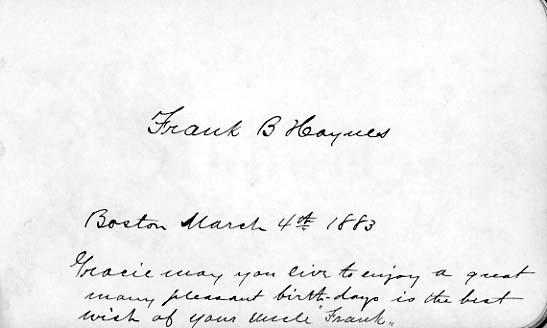 Frank B Haynes
Boston March 4th 1883
Gracie may you live to enjoy a great
many pleasant birth-days is the best
wish of your uncle Frank.